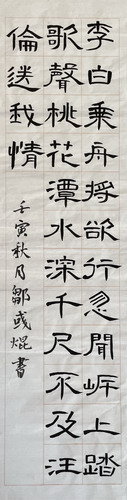 李白乘舟将欲行忽聞岸上踏
歌聲桃花潭水深千尺不及汪
倫送我情
壬寅秋月鄒彧焜書